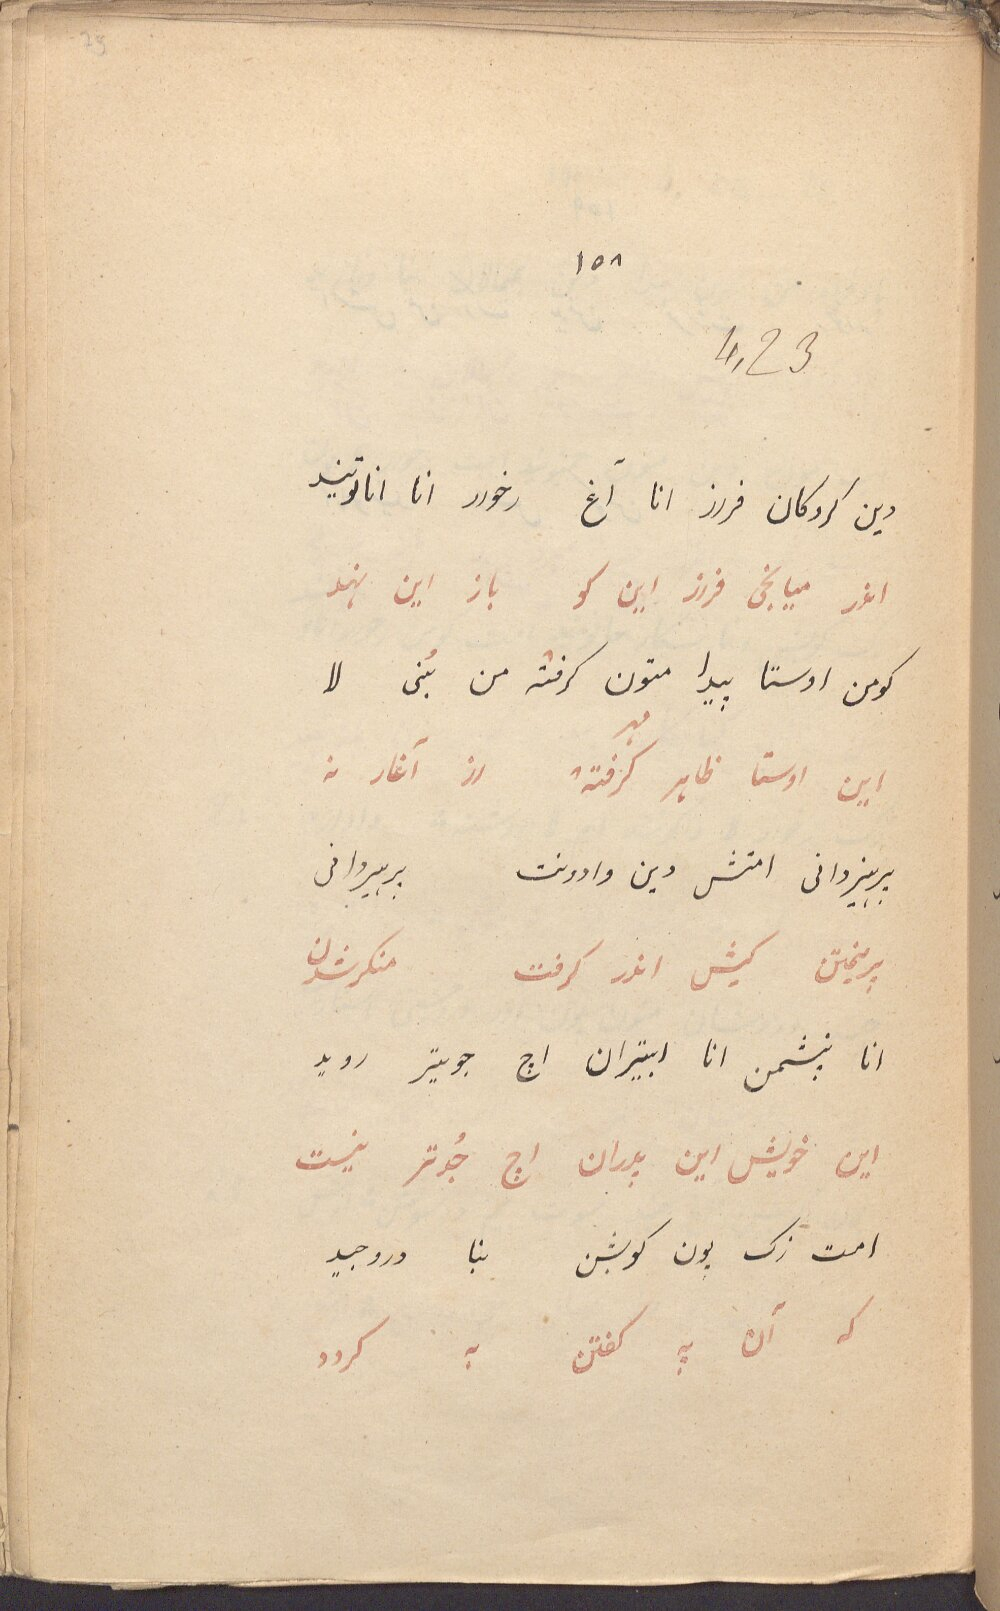 29
۱۵۸
4,23
دین کردکان فراز انا آغ رخوار انا اناوتیند
اندر میانجی فراز این کو باز این نهد
کومن اوستا پیدا متون کرفته من بُنی لا
مهر
این اوستا ظاهر کرفته از آغاز نه
پرهیزدانی امتش دین وادونت پرهیزدانی
کیش اندر کرفت منکرشدن
انا نپشمن انا ابیتران اج جوبیتر روید
این خویش این پدران اج جُدتر نیست
امت زک پون کوبشن بنا دروجید
که آن په کفتن به کردد